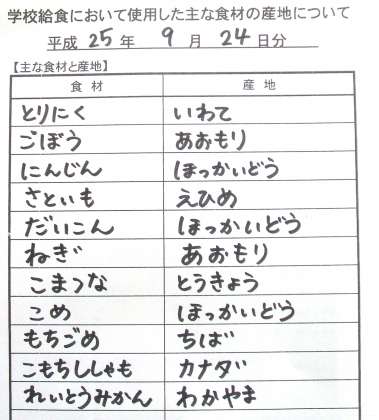 学校給食において使用した主な食材の産地について
平成 25 年 9 月 24 日分
【主な食材と産地】
食材 産地
とりにく いわて
ごぼう あおもり
にんじん ほっかいどう
さといも えひめ
だいこん ほっかいどう
ねぎ あおもり
こまつな とうきょう
こめ ほっかいどう
もちごめ ちば
こもちししゃも カナダ
れいとうみかん わかやま